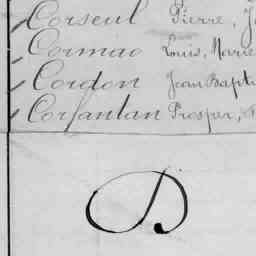 Corseul Pierre, J
Cormiao Louis, Marie
Cordon Jean Bapti
Corfantan Prosper,
D